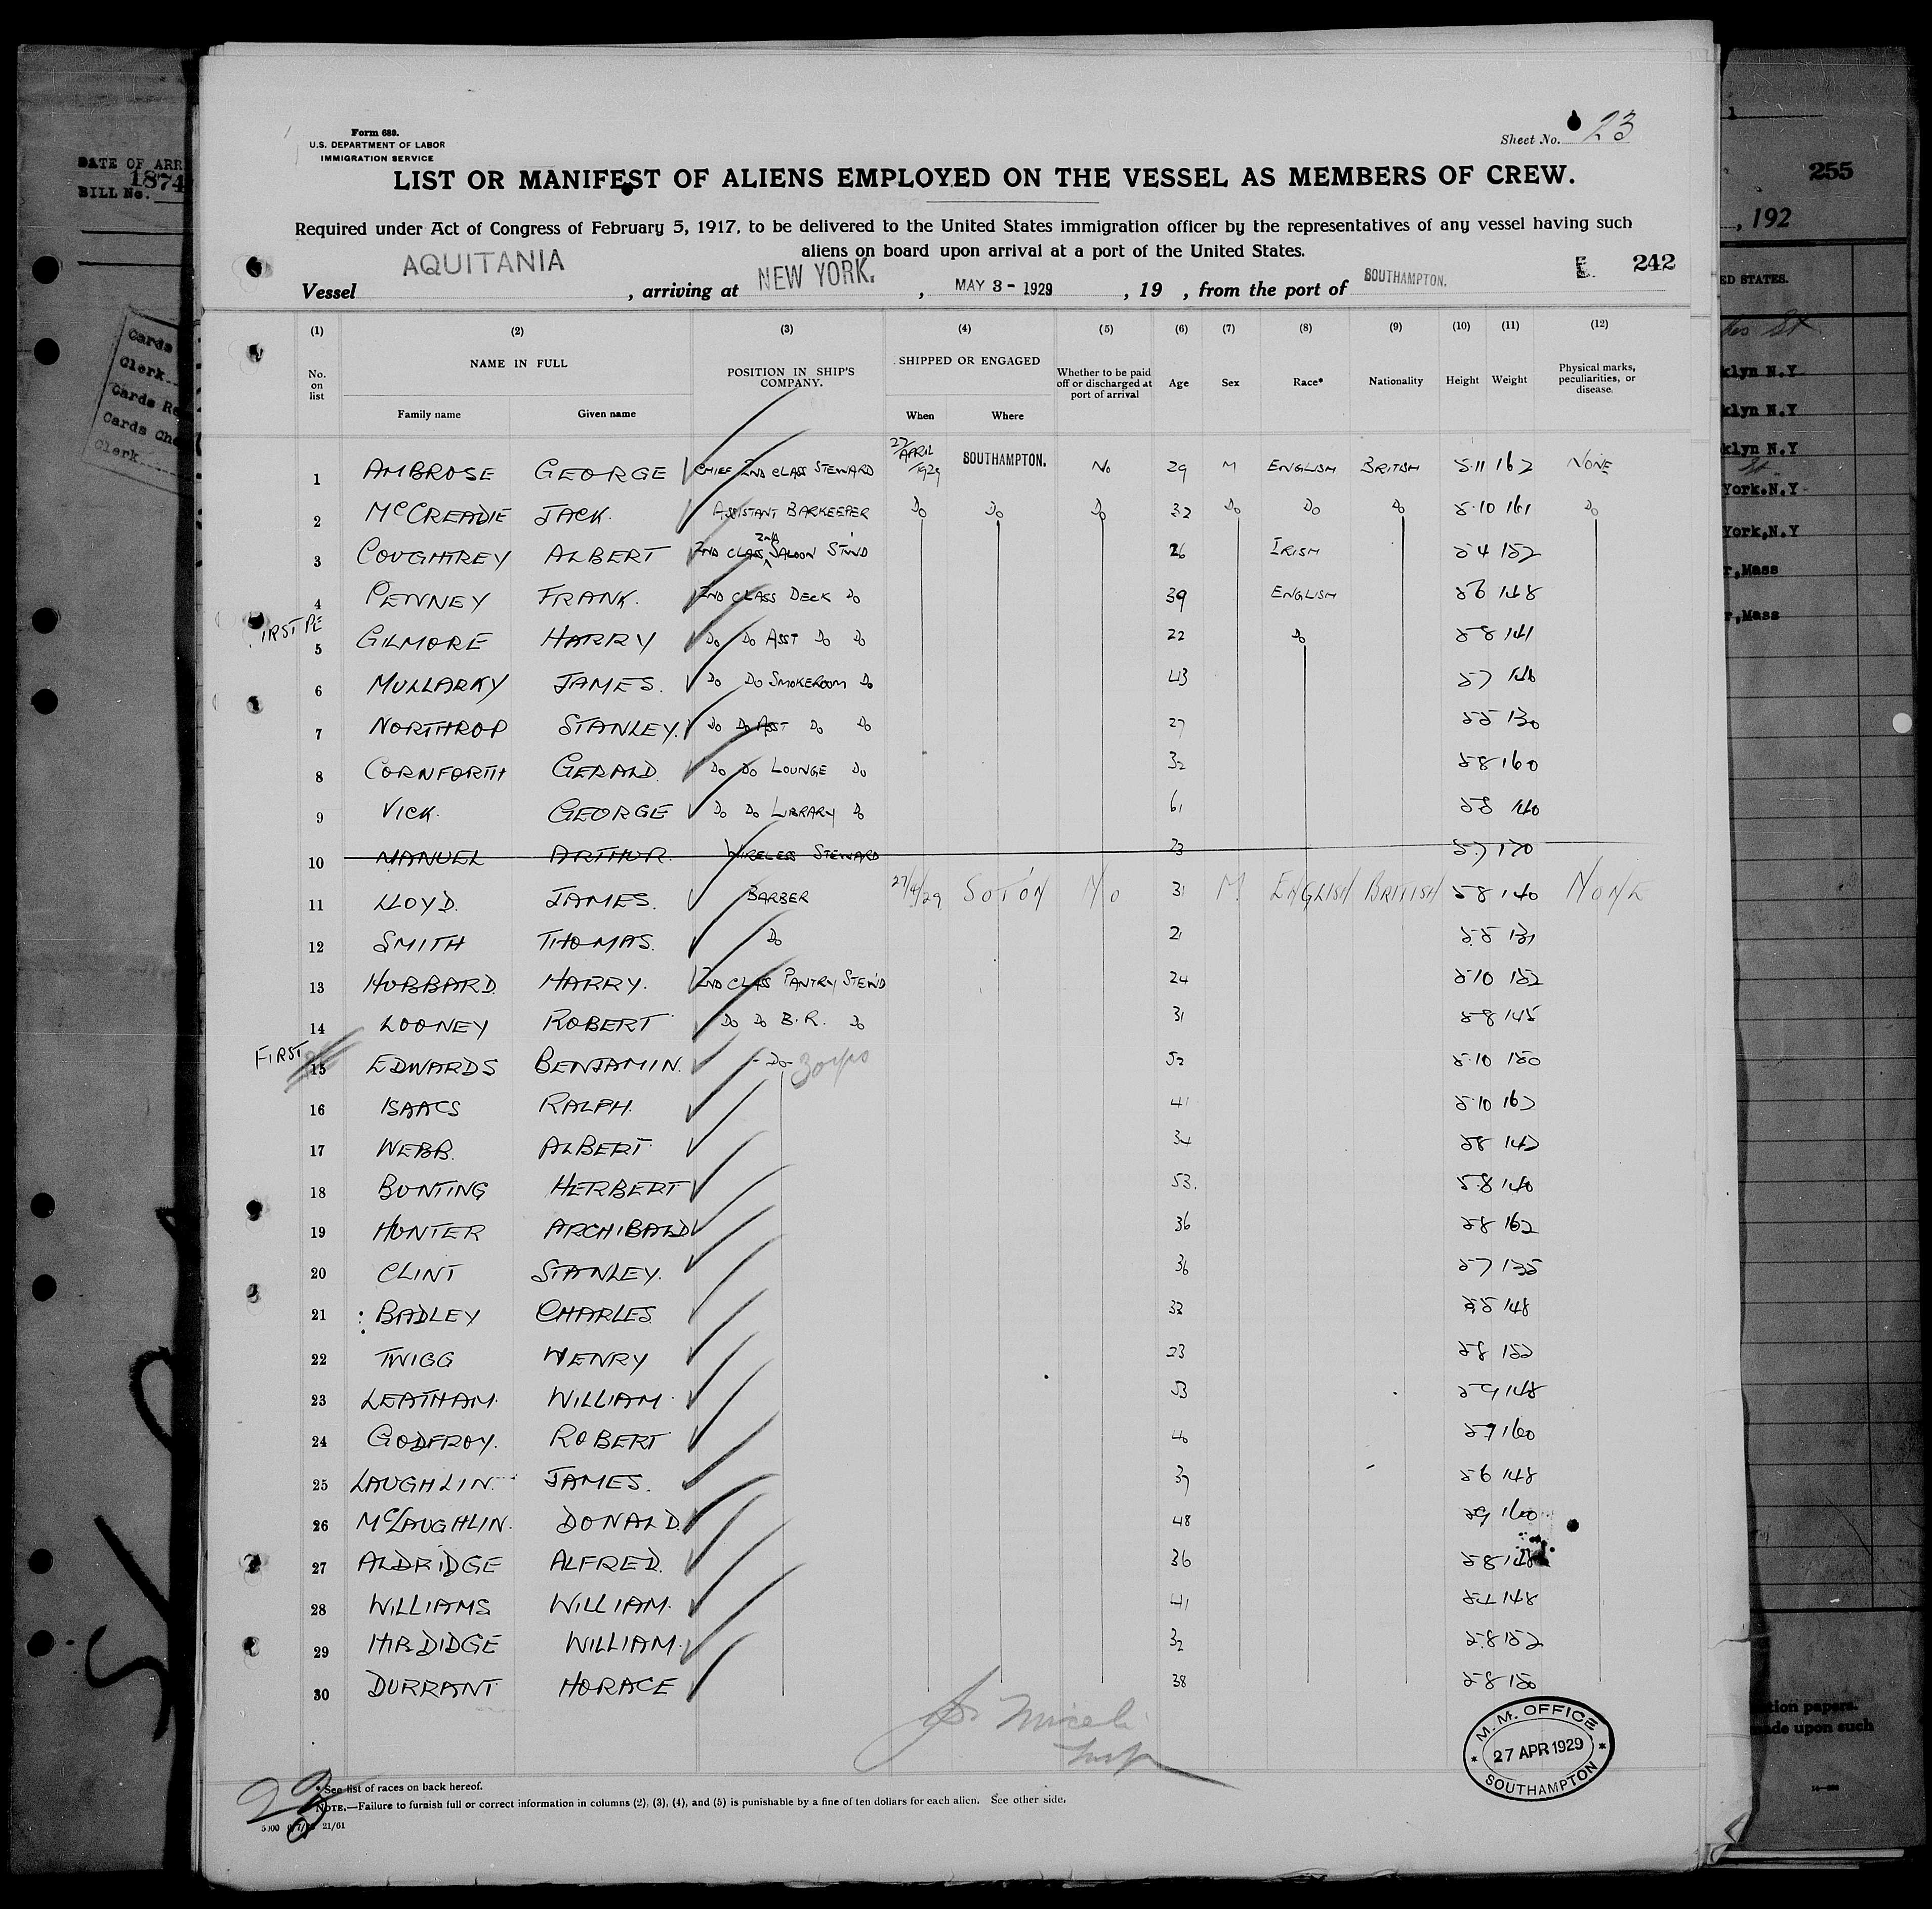 Form 689.
U.S. DEPARTMENT OF LABOR
IMMIGRATION SERVICE
Sheet No. 23
LIST OR MANIFEST OF ALIENS EMPLOYED ON THE VESSEL AS MEMBERS OF CREW.
Required under Act of Congress of February 5, 1917, to be delivered to the United States immigration officer by the representatives of any vessel having such
aliens on board upon arrival at a port of the United States.
E. 242
Vessel AQUITANIA, arriving at NEW YORK., MAY 3 - 1929, 19 , from the port of SOUTHAMPTON.
(1) (2) (3) (4) (5) (6) (7) (8) (9) (10) (11) (12)
No. on list NAME IN FULL POSITION IN SHIP'S COMPANY. SHIPPED OR ENGAGED Whether to be paid off or discharged at port of arrival Age Sex Race* Nationality Height Weight Physical marks, peculiarities, or disease.
Family name Given name When Where
1 AMBROSE GEORGE CHIEF 2ND CLASS STEWARD 27 APRIL 1929 SOUTHAMPTON. No 29 M ENGLISH BRITISH 5.11 162 NONE
2 McCREADIE JACK. ASSISTANT BARKEEPER Do Do Do 32 Do Do Do 5.10 161 Do
3 COUGHTREY ALBERT 2ND CLASS 2ND SALOON STWD 26 IRISH 5 4 152
4 PENNEY FRANK. 2ND CLASS DECK Do 39 ENGLISH 5 6 148
5 GILMORE HARRY Do Do ASST Do Do 22 Do 5 8 141
6 MULLARKY JAMES. Do Do SMOKEROOM Do 43 5 7 146
7 NORTHROP STANLEY. Do Do ASST Do Do 27 5 5 130
8 CORNFORTH GERALD. Do Do LOUNGE Do 32 5 8 160
9 VICK. GEORGE Do Do LIBRARY Do 61 5 8 140
10 MANUEL ARTHUR. WIRELESS STEWARD 23 5.7 170
11 LLOYD. JAMES. BARBER 27/4/29 SOTON No 31 M. ENGLISH BRITISH 5 8 140 NONE
12 SMITH THOMAS. Do 21 5.5 131
13 HUBBARD. HARRY. 2ND CLASS PANTRY STEWD 24 5.10 152
14 LOONEY ROBERT Do Do B.R. Do 31 5 8 145
FIRST
15 EDWARDS BENJAMIN. - Do - 52 5.10 150
16 ISAACS RALPH. 41 5.10 167
17 WEBB. ALBERT 34 5 8 147
18 BUNTING HERBERT 53. 5.8 140
19 HUNTER ARCHIBALD 36 5 8 162
20 CLINT STANLEY. 36 5 7 135
21 BADLEY CHARLES 5 5 148
22 TWIGG HENRY 23 5 8 152
23 LEATHAM. WILLIAM 53 5 9 148
24 GODFROY. ROBERT 40 5.7 160
25 LAUGHLIN. JAMES. 37 5 6 148
26 McLAUGHLIN. DONALD. 48 5 9 160
27 ALDRIDGE ALFRED. 36 5 8
28 WILLIAMS WILLIAM. 41 5 4 148
29 HIRDIDGE WILLIAM. 32 5.8 152
30 DURRANT HORACE 38 5 8 150
M. M. OFFICE
27 APR 1929
SOUTHAMPTON
* See list of races on back hereof.
NOTE.—Failure to furnish full or correct information in columns (2), (3), (4), and (5) is punishable by a fine of ten dollars for each alien. See other side.
21/61
DATE OF ARR
BILL No. 1874
Cards
Clerk
Cards Re
Cards Che
Clerk
255
, 192
ED STATES.
klyn N.Y
klyn N.Y
klyn N.Y
York.N.Y
York,N.Y
,Mass
,Mass
tion papers.
made upon such